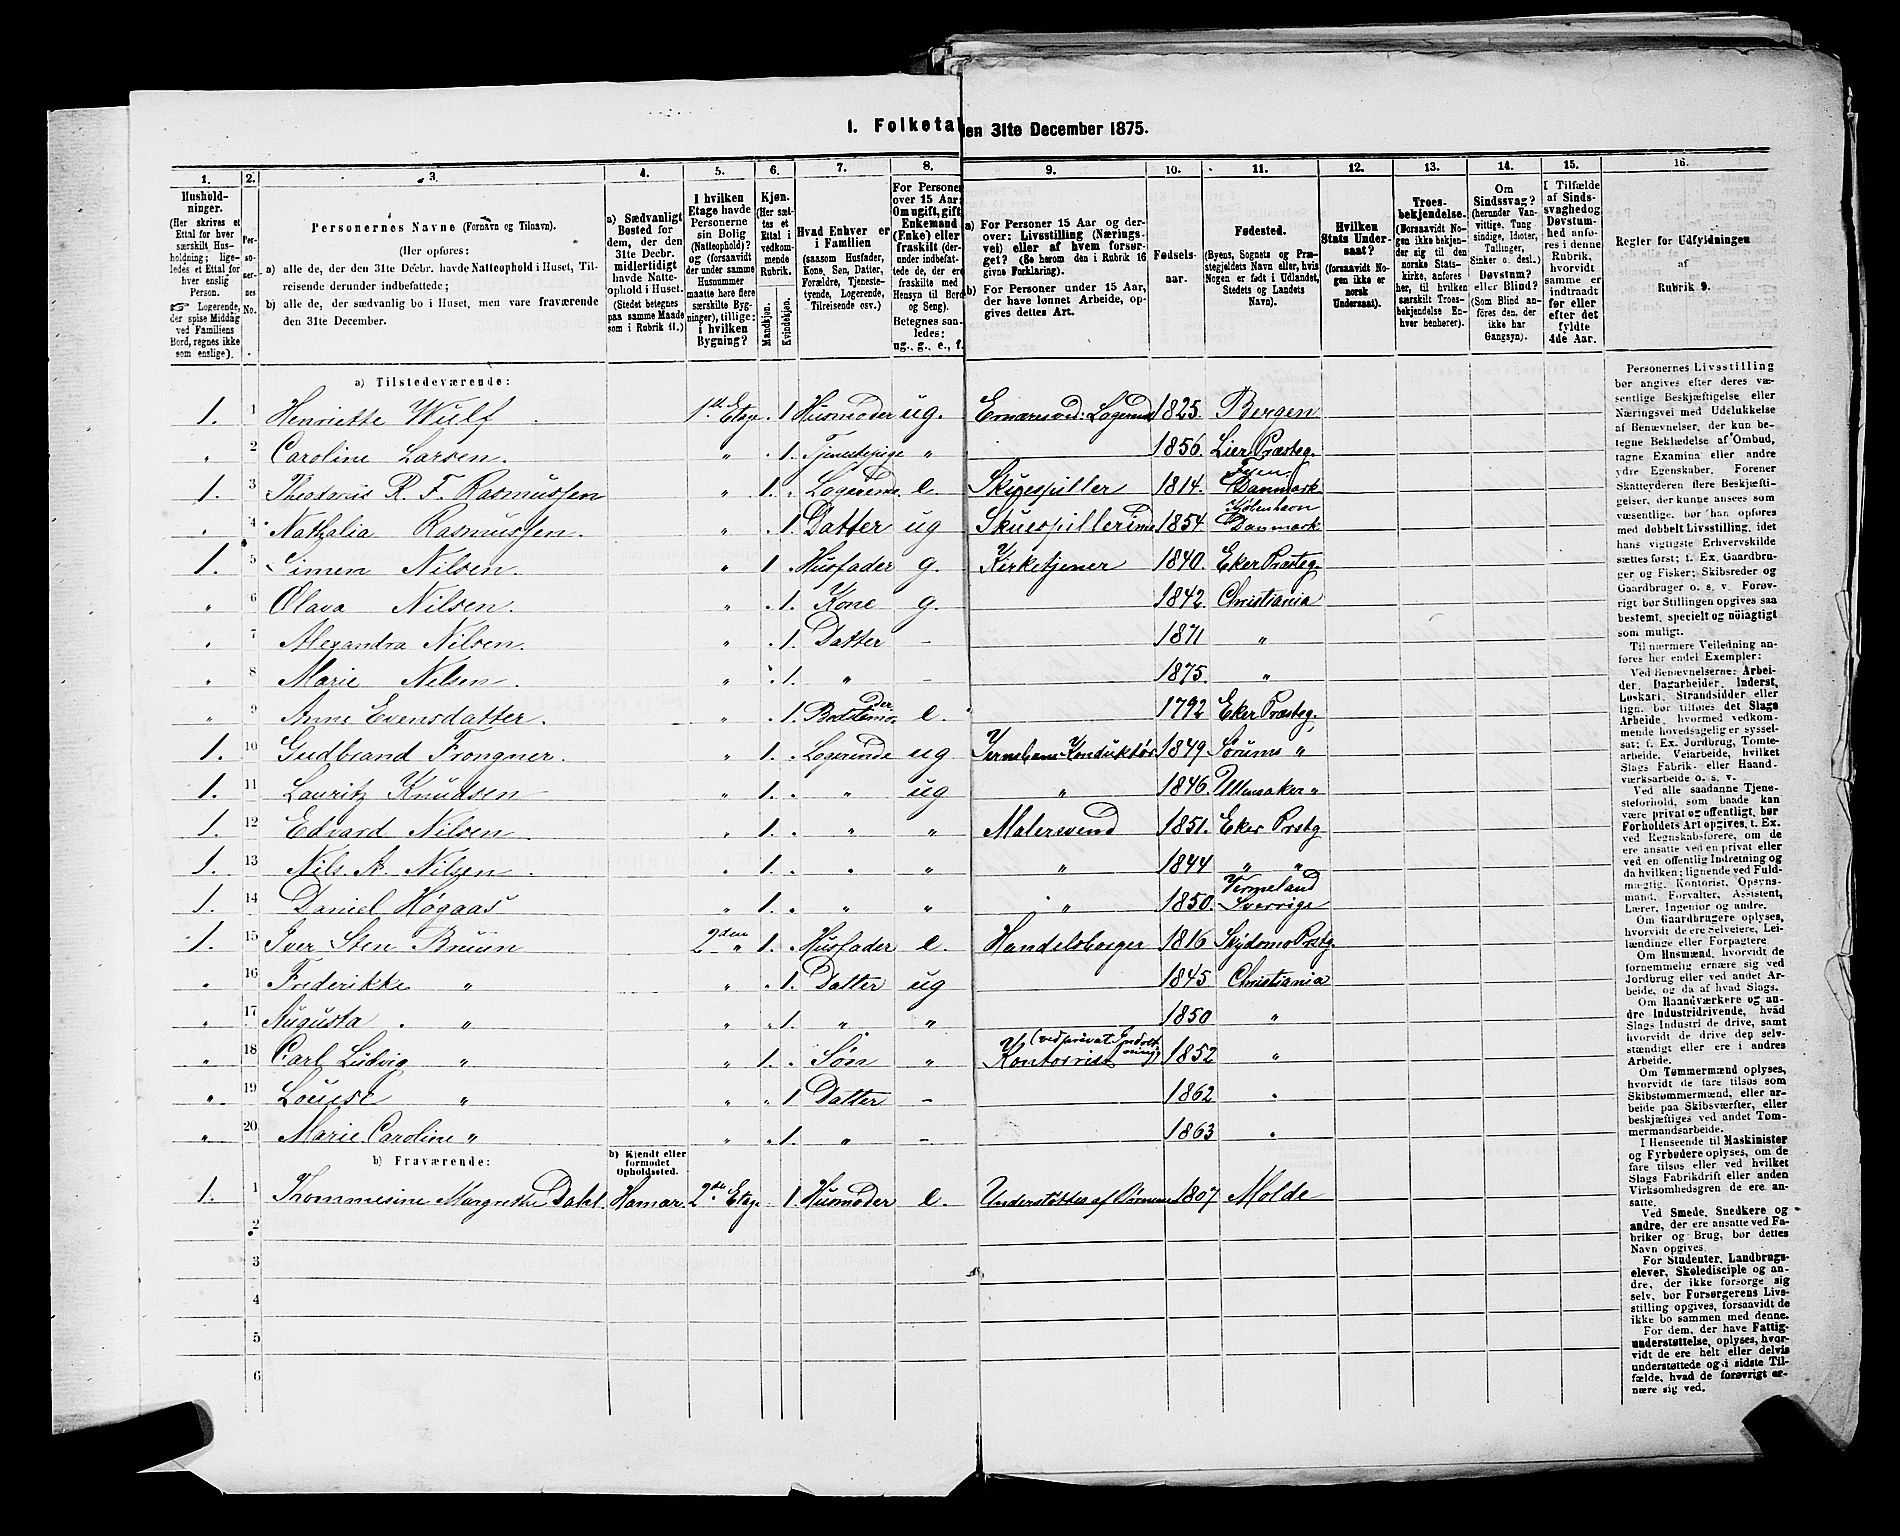 1. Folketal den 31te December 1875.
1. 2. 3. 4. 5. 6. 7. 8. 9. 10. 11. 12. 13. 14. 15. 16.
Hushold-
ninger.
(Her skrives et
Ettal for hver
særskilt Hus-
holdning; lige-
ledes et Ettal for
hver enslig
Person.
Logerende,
der spise Middag
ved Familiens
Bord, regnes ikke
som enslige).
Per-
soner-
nes
No.
Personernes Navne (Fornavn og Tilnavn).
(Her opføres:
a) alle de, der den 31te Decbr. havde Natteophold i Huset, Til-
reisende derunder indbefattede;
b) alle de, der sædvanlig bo i Huset, men vare fraværende
den 31te December.
a) Sædvanligt
Bosted for
dem, der den
31te Decbr.
midlertidigt
havde Natte-
ophold i Huset.
(Stedet betegnes
paa samme Maade
som i Rubrik 11.)
I hvilken
Etage havde
Personerne
sin Bolig
(Natteophold)?
og (forsaavidt
der under samme
Husnummer
maatte høre flere
særskilte Byg-
ninger), tillige:
i hvilken
Bygning?
Kjøn.
(Her sæt-
tes et
Ettal i
vedkom-
mende
Rubrik.
Mandkjøn.
Kvindekjøn.
Hvad Enhver er
i Familien
(saasom Husfader,
Kone, Søn, Datter,
Forældre, Tjeneste-
tyende, Logerende,
Tilreisende osv.)
For Personer
over 15 Aar:
Om ugift, gift,
Enkemand
(Enke) eller
fraskilt (der-
under indbefat-
tede de, der ere
fraskilte med
Hensyn til Bord
og Seng).
Betegnes saa-
ledes:
ug., g., e., f.
a) For Personer 15 Aar og der-
over: Livsstilling (Nærings-
vei) eller af hvem forsør-
get? (Se herom den i Rubrik 16
givne Forklaring).
b) For Personer under 15 Aar,
der have lønnet Arbeide, op-
gives dettes Art.
Fødsels-
aar.
Fødested.
(Byens, Sognets og Præ-
stegjeldets Navn eller, hvis
Nogen er født i Udlandet,
Stedets og Landets
Navn).
Hvilken
Stats Under-
saat?
(forsaavidt No-
gen ikke er
norsk
Undersaat).
Troes-
bekjendelse.
(Forsaavidt No-
gen ikke bekjen-
der sig til den
norske Stats-
kirke, hvilket
særskilt Troes-
bekjendelse En-
hver henhører).
Om
Sindssvag?
(herunder Van-
vittige, Tung-
sindige, Idioter,
Tullinger,
Sinker o. desl.)
Døvstum?
eller Blind?
(Som Blind an-
føres den, der
ikke har
Gangsyn).
I Tilfælde
af Sinds-
svaghed og
Døvstum-
hed anfø-
res i denne
Rubrik,
hvorvidt
samme er
indtraadt
før eller
efter det
fyldte
4de Aar.
Regler for Udfyldningen
af
Rubrik 9.
a) Tilstedeværende:
1. 1 Henriette Wulf 1ste Etage 1 Husmoder ug. Ernæres ved: Logerende 1825. Bergen
" 2 Caroline Larsen. " 1. Tjenestepige " 1856. Lier Præsteg.
1. 3 Theodorus R. F. Rasmussen " 1. Logerende e. Skuespiller 1814. Fyen Danmark
" 4 Nathalia Rasmussen. " 1 Datter ug Skuespillerinde 1854. Kjøbenhavn Danmark
1. 5 Simen Nilsen. " 1 Husfader g. Kirketjener 1840. Eker Præsteg.
" 6 Olava Nilsen. " 1. Kone g. 1842. Christiania
" 7 Alexandra Nilsen. " 1. Datter - 1871 "
" 8 Marie Nilsen. " 1. " - 1875. "
" 9 Anne Evensdatter. " 1. Bedstemoder e. 1792 Eker Præsteg.
1. 10 Gudbrand Frongner. " 1. Logerende ug. Jernbane Konduktør 1849 Sørums "
1. 11 Lauritz Knudsen " 1. " ug " 1846. Ullensaker "
1. 12 Edvard Nilsen " 1. " " Malersvend 1851. Eker Prstg
1. 13 Nils A. Nilsen " 1. " " " 1844 " "
1. 14 Daniel Høgaas " 1. " " " 1850. Vermeland Sverrige
1. 15 Iver Sten Bruun 2den " 1. Husfader e. Handelsborger 1816 Skydsmo Prstg.
" 16 Frederikke " " 1. Datter ug 1845 Christiania
" 17 Augusta " " 1. " " 1850 "
" 18 Carl Ludvig " " 1. Søn " Kontorist (ved privat Indretning) 1852 "
" 19 Louise " " 1 Datter - 1862 "
" 20 Marie Caroline " " 1. " - 1863 "
b) Fraværende:
b) Kjendt eller
formodet
Opholdssted.
1. 1 Thommesine Margrethe Dahl. Hamar. 2den Etage 1. Husmoder e. Understøttes af Børnene 1807 Molde
2
3
4
5
6
Personernes Livsstilling
bør angives efter deres væ-
sentlige Beskjæftigelse eller
Næringsvei med Udelukkelse
af Benævnelser, der kun be-
tegne Beklædelse af Ombud,
tagne Examina eller andre
ydre Egenskaber. Forener
Skatteyderen flere Beskjæfti-
gelser, der kunne ansees som
væsentlige, bør han opføres
med dobbelt Livsstilling, idet
hans vigtigste Erhvervskilde
sættes først; f. Ex. Gaardbru-
ger og Fisker; Skibsreder og
Gaardbruger o. s. v. Forøv-
rigt bør Stillingen opgives saa
bestemt, specielt og nøiagtigt
som muligt.
Til nærmere Veiledning an-
føres her endel Exempler:
Ved Benævnelserne: Arbei-
der, Dagarbeider, Inderst,
Løskarl, Strandsidder eller
lign. bør tilføies det Slags
Arbeide, hvormed vedkom-
mende hovedsagelig er syssel-
sat; f. Ex. Jordbrug, Tomte-
arbeide, Veiarbeide, hvilket
Slags Fabrik- eller Haand-
værksarbeide o. s. v.
Ved alle saadanne Tjene-
steforhold, som baade kan
være privat og offentligt, bør
Forholdets Art opgives, t. Ex.
ved Regnskabsførere, om de
ere ansatte ved en privat eller
ved en offentlig Indretning og
da hvilken; lignende ved Fuld-
mægtig, Kontorist, Opsyns-
mand, Forvalter, Assistent,
Lærer, Ingeniør og andre.
Om Gaardbrugere oplyses,
hvorvidt de ere Selveiere, Lei-
lændinge eller Forpagtere
Om Husmænd, hvorvidt de
fornemmelig ernære sig ved
Jordbrug eller ved andet Ar-
beide, og da af hvad Slags.
Om Haandværkere og an-
dre Industridrivende, hvad
Slags Industri de drive, samt
hvorvidt de drive den selv-
stændigt eller ere i andres
Arbeide.
Om Tømmermænd oplyses,
hvorvidt de fare tilsøs som
Skibstømmermænd, eller ar-
beide paa Skibsværfter, eller
beskjæftiges ved andet Tøm-
mermandsarbeide.
I Henseende til Maskinister
og Fyrbødere oplyses, om de
fare tilsøs eller ved hvilket
Slags Fabrikdrift eller anden
Virksomhedsgren de ere an-
satte.
Ved Smede, Snedkere og
andre, der ere ansatte ved Fa-
briker og Brug, bør dettes
Navn opgives.
For Studenter, Landbrugs-
elever, Skoledisciple og an-
dre, der ikke forsørge sig
selv, bør Forsørgerens Livs-
stilling opgives, forsaavidt de
ikke bo sammen med denne.
For dem, der have Fattig-
understøttelse, oplyses, hvor-
vidt de ere helt eller delvis
understøttede og i sidste Til-
fælde, hvad de forøvrigt er-
nære sig ved.